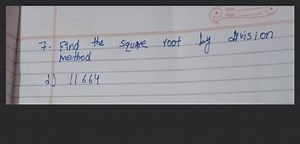 7. Find the square root by division
method
d) 11664